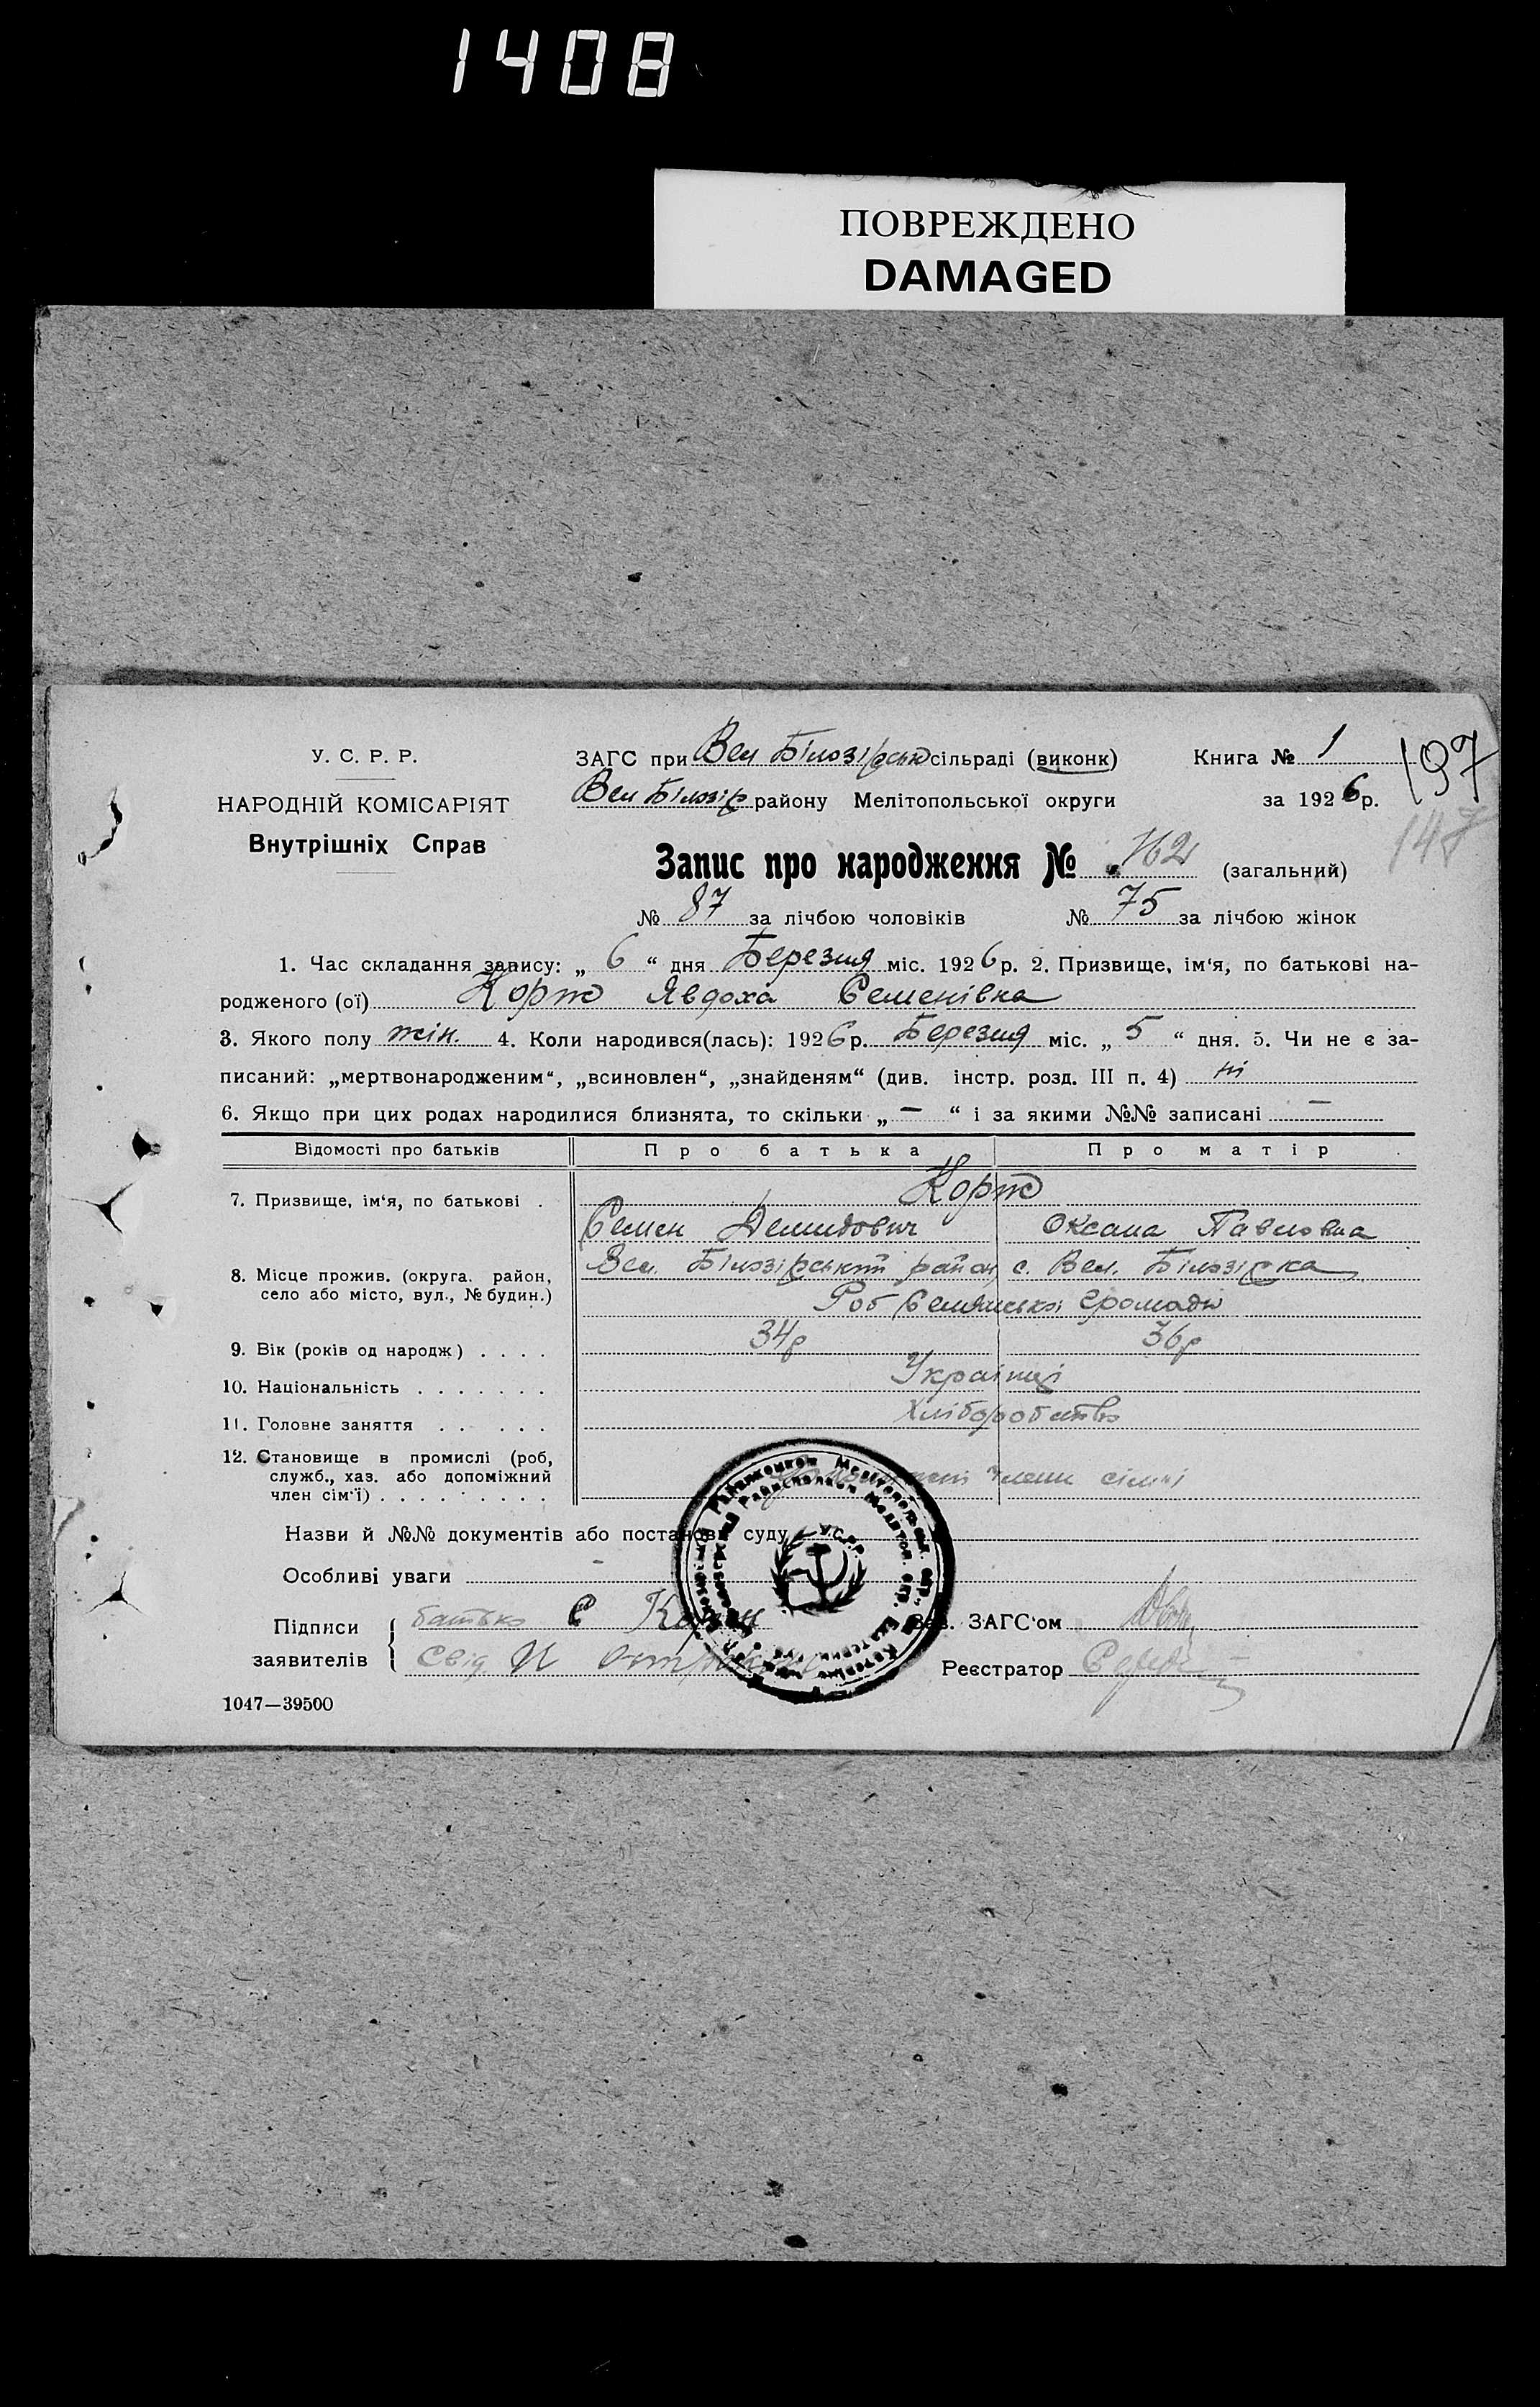 1408
ПОВРЕЖДЕНО
DAMAGED
У. С. Р. Р.
НАРОДНІЙ КОМІСАРІЯТ
Внутрішніх Справ
ЗАГС при Вел Білозірськ сільраді (виконк)
Книга № 1
197
Вел Білозір району Мелітопольської округи
за 1926 р.
147
Запис про народження № 162 (загальний)
№ 87 за лічбою чоловіків № 75 за лічбою жінок
1. Час складання запису: „ 6 “ дня Березня міс. 1926 р. 2. Призвище, ім‘я, по батькові на-
родженого (ої) Корж Явдоха Семенівка
3. Якого полу жін. 4. Коли народився(лась): 1926 р. Березня міс. „ 5 “ дня. 5. Чи не є за-
писаний: „мертвонародженим“, „всиновлен“, „знайденям“ (див. інстр. розд. III п. 4) ні
6. Якщо при цих родах народилися близнята, то скільки „ — “ і за якими №№ записані —
Відомості про батьків Про батька Про матір
7. Призвище, ім‘я, по батькові . Корж
Семен Демидович Оксана Павловна
8. Місце прожив. (округа. район,
село або місто, вул., № будин.)
Вел. Білозірський район с. Вел. Білозірка
громади
9. Вік (років од народж) . . . . 34р 36р
10. Національність . . . . . . . Українці
11. Головне заняття . . . . . Хліборобство
12. Становище в промислі (роб,
служб., хаз. або допоміжний
член сім‘ї) . . . . . . . . .
члени сімьі
Назви й №№ документів або постанови суду
У.С.Р.Р.
Особливі уваги —
Підписи
заявителів
батько С Корж
свід И
Зав. ЗАГС‘ом
Реєстратор
1047—39500